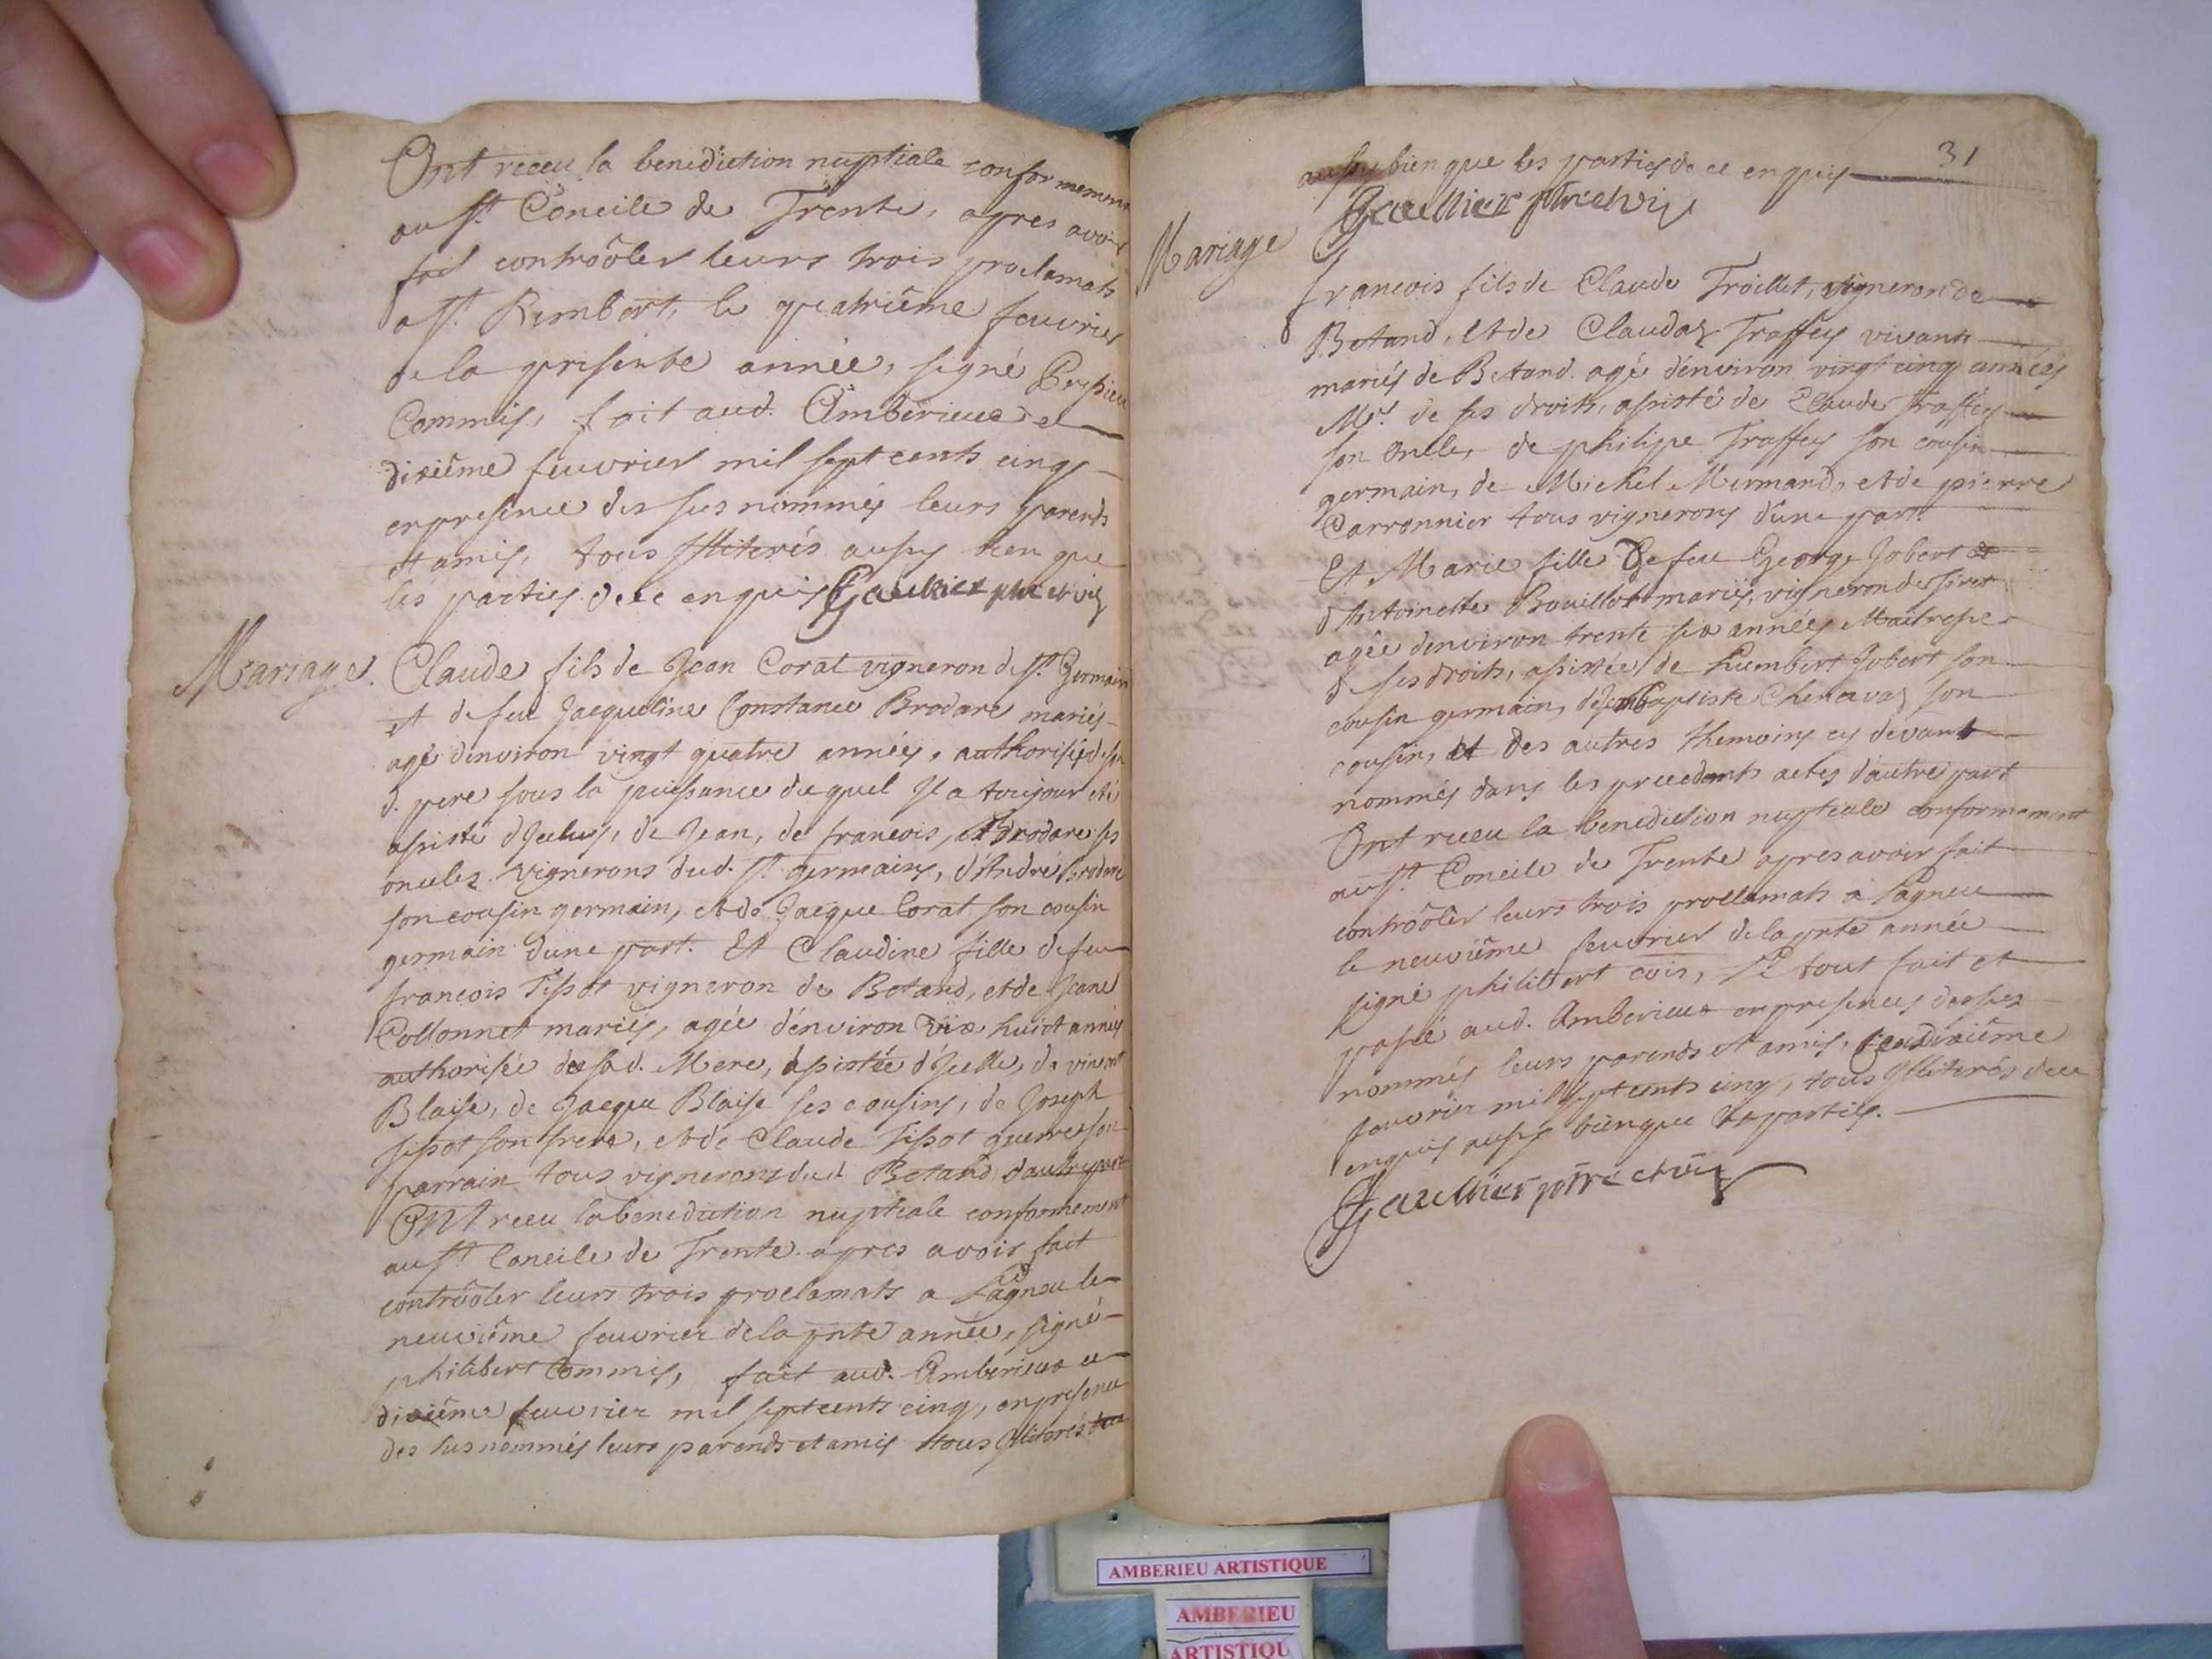 Ont receu la benediction nuptiale conformement
au st. Concile de Trente, apres avoir
fait contrôoler leurs trois proclamats
a st. Rembert, le quatriême feuvrier
de la presente année, signé
Commis, fait aud. Ambérieux ce
dixiême feuvrier mil sept cents cinq
en presence des sus nommés leurs parents
et amis, tous Illiterés aussy bien que
les parties de ce enquis Gaullier ptre et vic
Mariage. Claude fils de Jean Corat vigneron de st. Germain
et de feue Jacqueline Constance Brodare mariés
agé d'environ vingt quatre années, authorisé de son
d. pere sous la puissance duquel Il a toujour eté
assisté d'Iceluy, de Jean, de francois, et Brodare ses
oncles vignerons dud. st. germain, d'André Brodare
son cousin germain, et de Jacque Corat son cousin
germain d'une part. Et Claudine fille de feu
francois Tissot vigneron de Betand, et de Jeane
Collonnet mariés, agée d'énviron dix huict années
authorisée de sad. Mere, assistée d'Icelle, de vincent
Blaise, de Jacque Blaise ses cousins, de Joseph
Tissot son frere, et de Claude Tissot guerre son
parrain tous vignerons dud. Betand d'autre part
Ont receu la benediction nuptiale conformement
au st. Concile de Trente apres avoir fait
contrôoler leurs trois proclamats a Lagneu le
neuviême feuvrier de la pnte année, signé
philibert Commis, fait aud. Amberieux ce
dixiême feuvrier mil sept cents cinq, en presence
des susnommés leurs parends et amis tous Illiterés
31
aussy bien que les parties de ce enquis
Gaullier ptre et vic
Mariage
francois fils de Claude Troillet, vigneron de
Betand, et de Clauda Traffey vivants
mariés de Betand agé d'énviron vingt cinq années
Mre. de ses droits, assisté de Claude Traffey
son oncle, de philipe Traffey son cousin
germain, de Michel Mermand, et de pierre
Carronnier tous vignerons d'une part.
Et Marie fille de feu George Jobert et
d'Antoinette Bouillot mariés, vigneron de
agée d'environ trente six années Maitresse
de ses droits, assistée de humbert Jobert son
cousin germain, de Jean Baptiste Chenavaz son
cousin, et des autres themoins cy devant
nommés dans les precedents actes d'autre part
Ont receu la benediction nuptiale conformement
au st. Concile de Trente apres avoir fait
contrôoler leurs trois procllamats à Lagneu
le neuviême feuvrier de la pnte année
signé philibert cois, le tout fait et
passé aud. Amberieux en presences des sus
nommés leurs parends et amis, ce dixiême
feuvrier mil sept cents cinq, tous Illiterés de ce
enquis aussy bien que les parties.
Gaullier ptre et vic
AMBERIEU ARTISTIQUE
AMBERIEU
ARTISTIQU